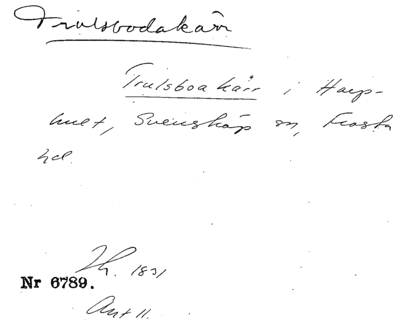 Trulsbodakärr
Trulsboa kärr i Harp-
hult, Svensköp sn, Frosta
hd.
Th. 1831
Nr 6789.
Avt 11.